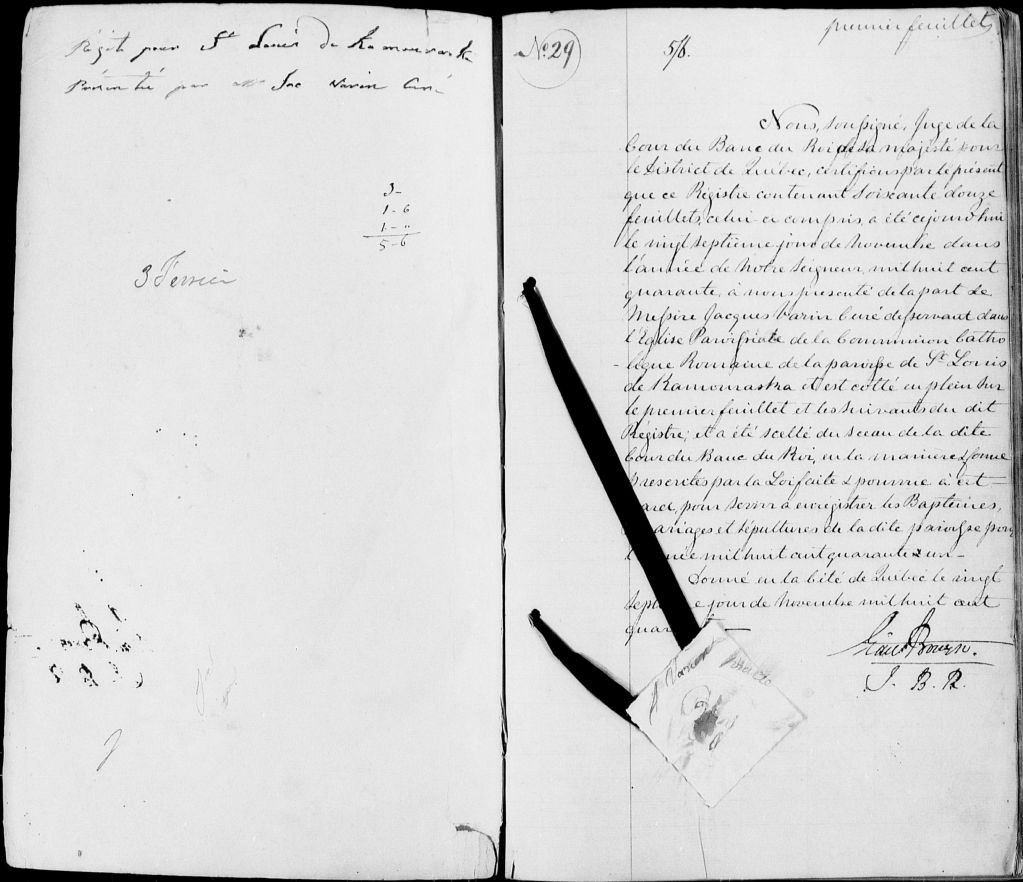 Régistre pour St Louis de Kamouraska
Présenté par Mr Jac Varin Curé
3-
1-6
1-"
5-6
3 Fevrier
premier feuillet
No. 29
5/6.
Nous, soussigné, Juge de la
Cour du Banc du Roi de Sa majesté pour
le District de Québec, certifions par le présent
que ce Régistre contenant Soixante douze
feuillets, celui ci compris, a été cejourd'hui
le vingt septième jour de Novembre dans
l'année de Notre Seigneur, mil huit cent
quarante, à nous présenté de la part de
Messire Jacques Varin Curé desservant dans
l'Eglise Paroissiale de la Communion Catho
-lique Romaine de la paroisse de St. Louis
de Kamouraska et est cotté en plein sur
le premier feuillet et les suivants du dit
Régistre; et a été scellé du sceau de la dite
Cour du Banc du Roi, en la manière & forme
prescrites par la Loi faite & pourvue à cet
-gard, pour servir à enrégistrer les Baptêmes,
Mariages et sépultures de la dite paroisse pour
l'année mil huit cent quarante & un -
Donné en la Cité de Québec le vingt
sept e jour de Novembre mil huit cent
quar
Ed. Bowen.
J. B. R.
Varin